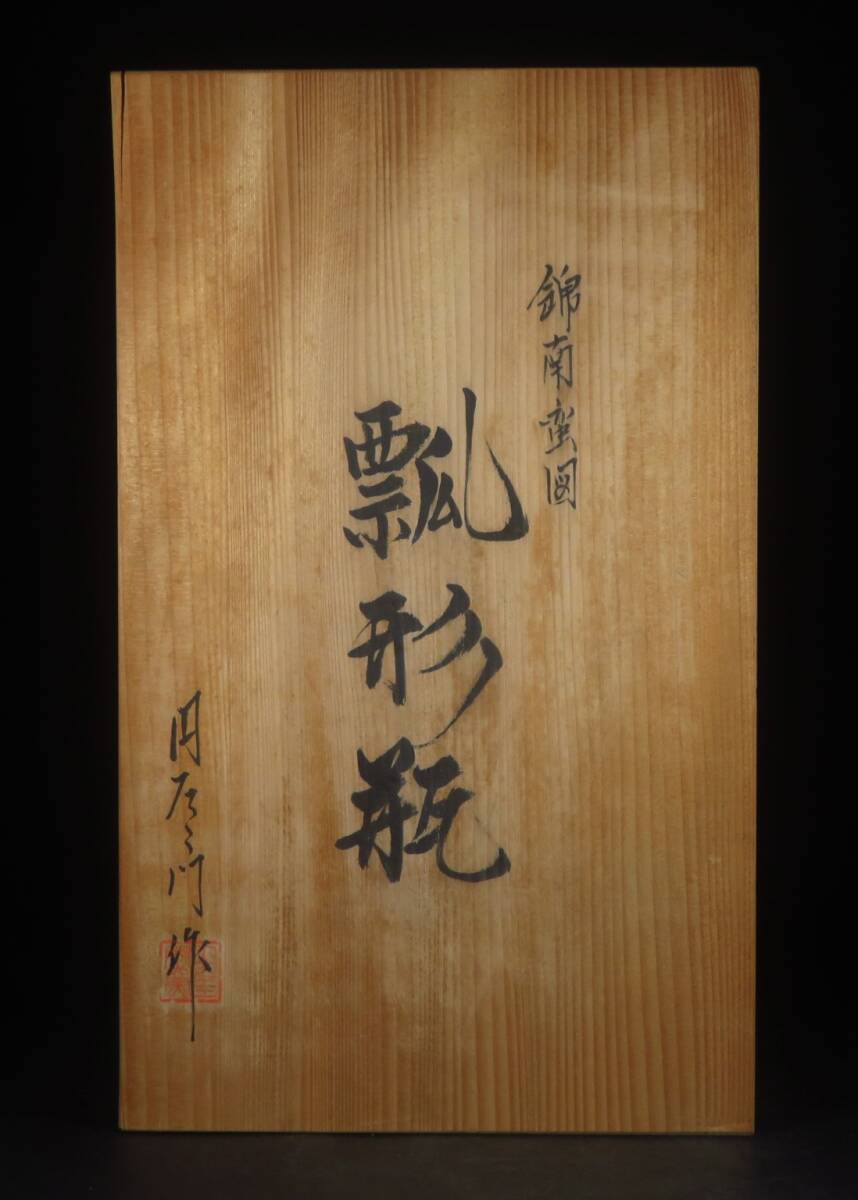 錦南蛮図
瓢形瓶
円左ヱ門作